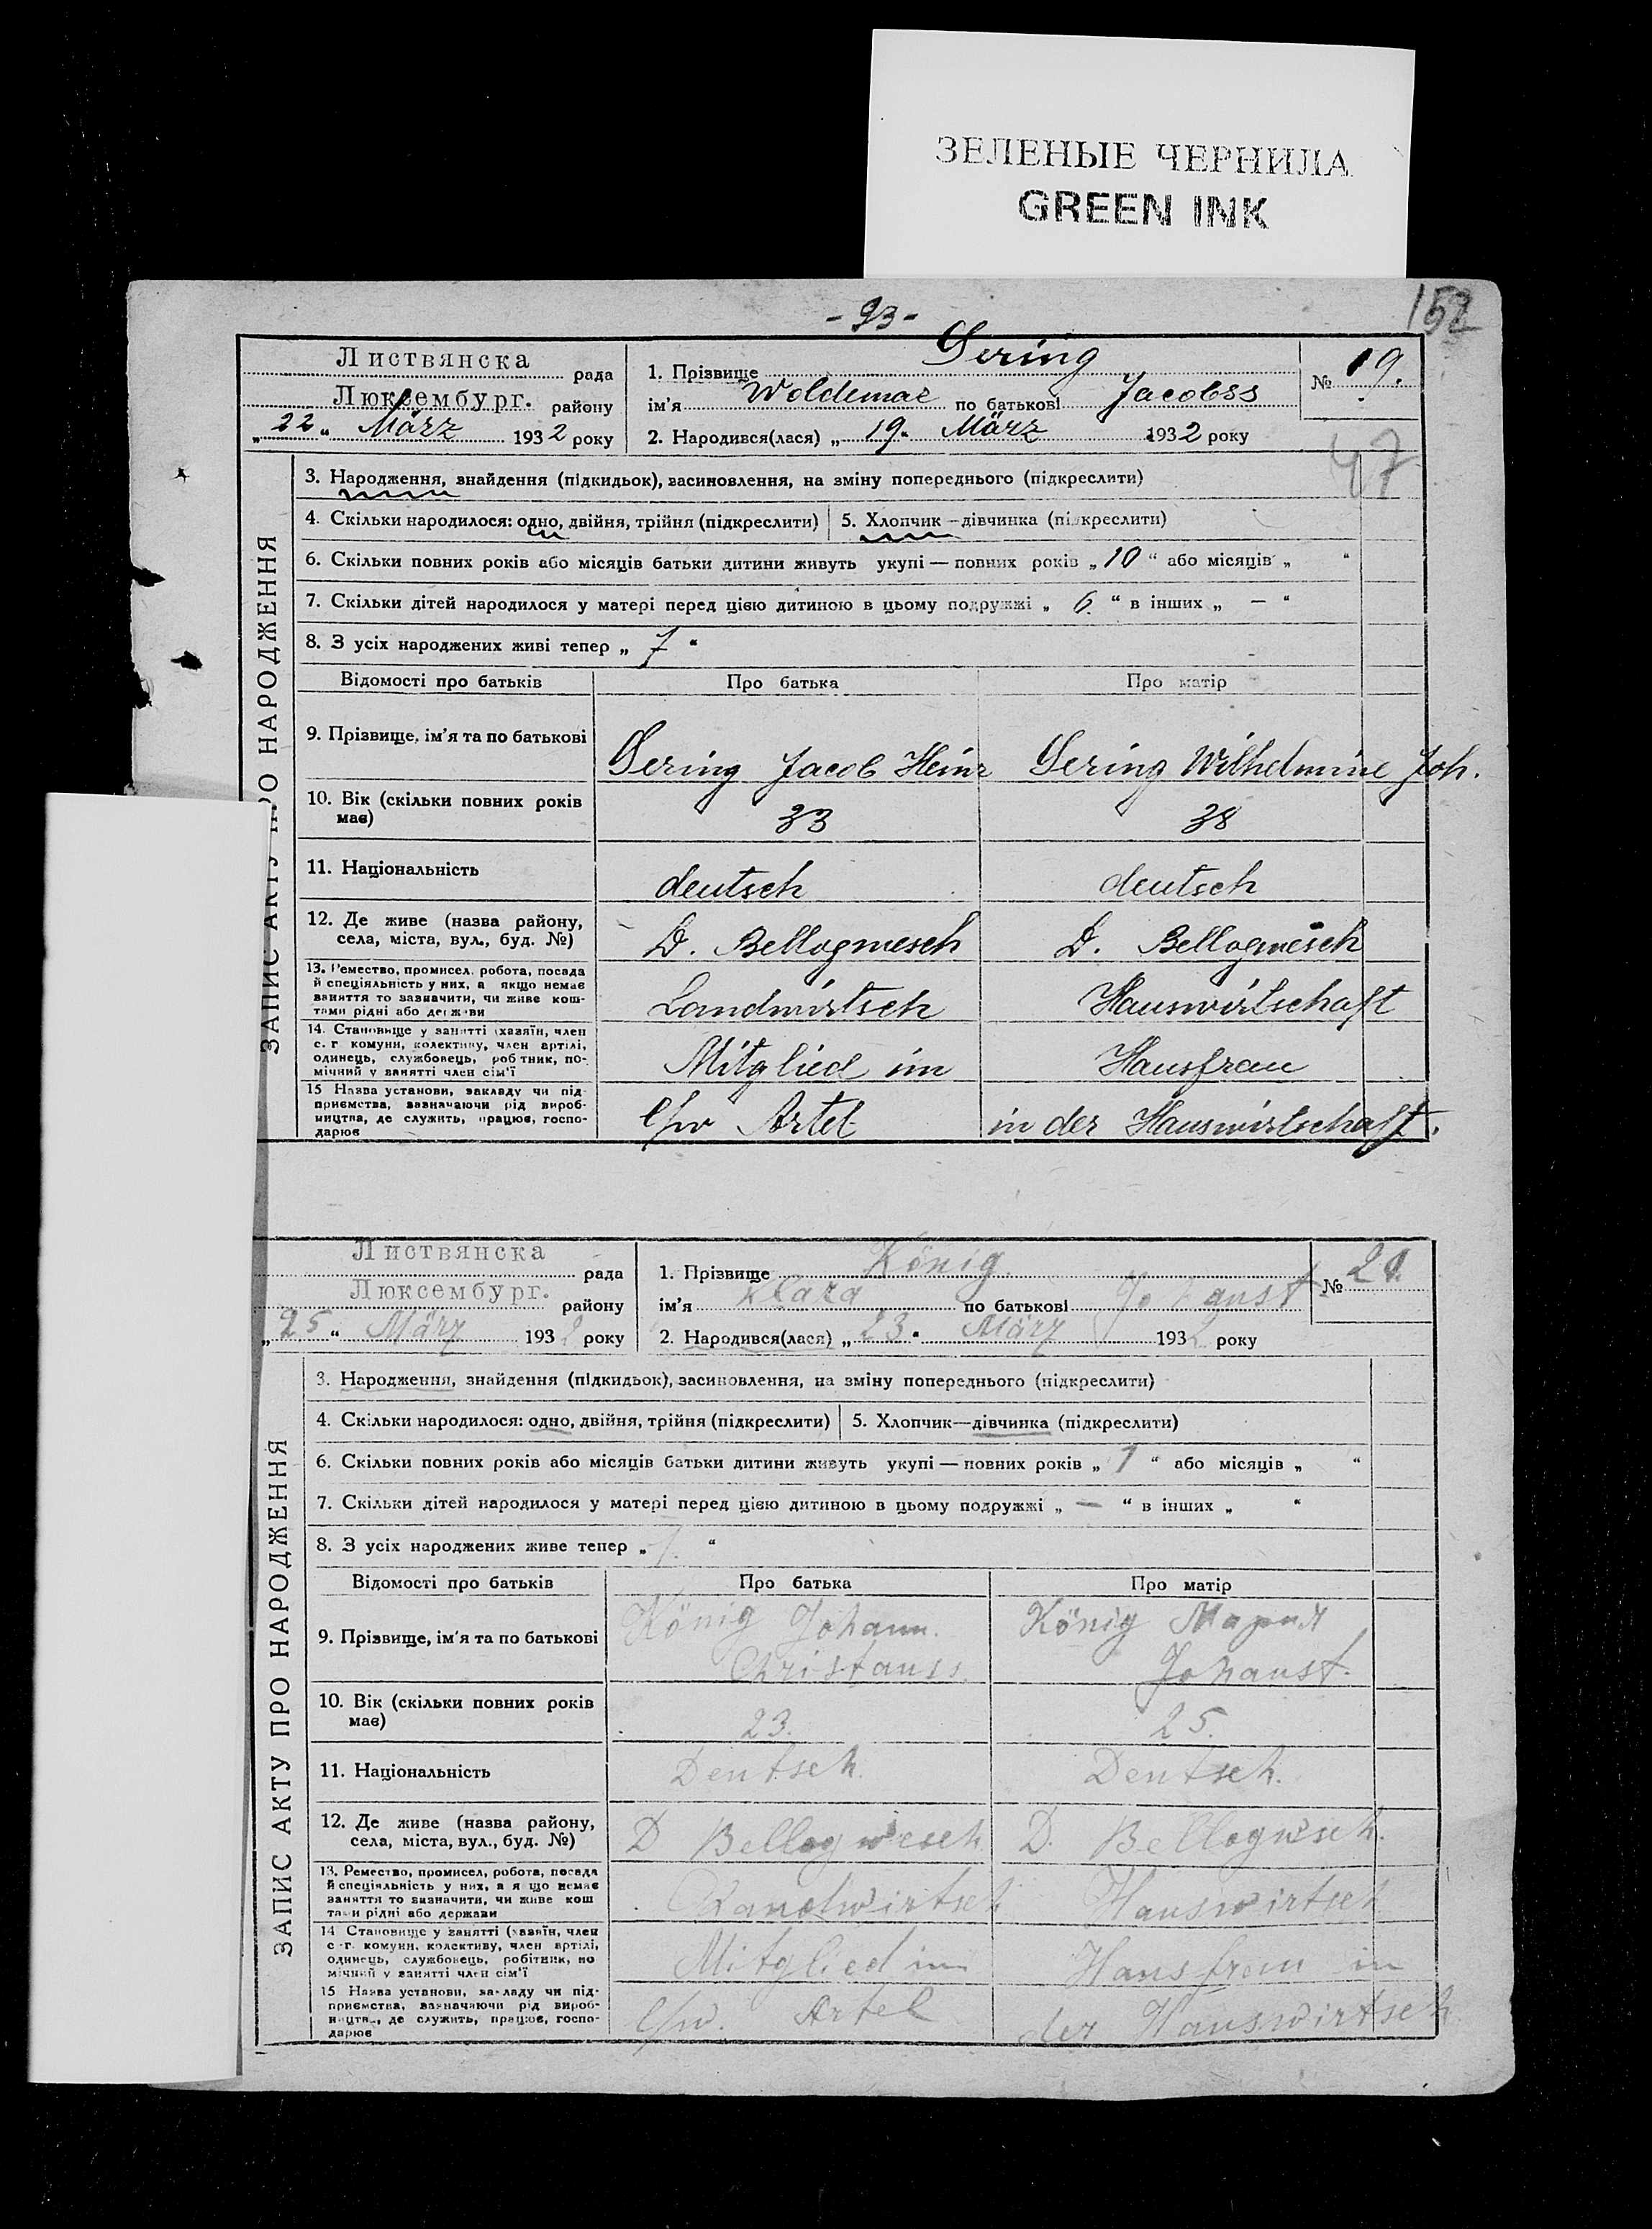 ЗЕЛЕНЫЕ ЧЕРНИЛА
GREEN INK
- 93 -
152
Листвянска рада
Люксембург. району
„ 22 “ März 1932 року
1. Прізвище Dering
ім'я Woldemar по батькові Jacobss
2. Народився(лася) „ 19 “ März 1932 року
№ 19.
47
ЗАПИС АКТУ ПРО НАРОДЖЕННЯ
3. Народження, знайдення (підкидьок), засиновлення, на зміну попереднього (підкреслити)
4. Скільки народилося: одно, двійня, трійня (підкреслити) 5. Хлопчик—дівчинка (підкреслити)
6. Скільки повних років або місяців батьки дитини живуть укупі — повних років „ 10 “ або місяців „ “
7. Скільки дітей народилося у матері перед цією дитиною в цьому подружжі „ 6. “ в інших „ — “
8. З усіх народжених живі тепер „ 7 “
Відомості про батьків Про батька Про матір
9. Прізвище, ім'я та по батькові Dering Jacob Heinr Dering Wilhelmine Joh.
10. Вік (скільки повних років має) 33 38
11. Національність deutsch deutsch
12. Де живе (назва району, села, міста, вул., буд. №) D. Bellogwesch D. Bellogwesch
13. Ремество, промисел, робота, посада й спеціяльність у них, а якщо немає заняття то зазначити, чи живе коштами рідні або держави Landwirtsch Hauswirtschaft
14. Становище у занятті (хазяїн, член с.-г. комуни, колективу, член артілі, одинець, службовець, робітник, помічний у занятті член сім'ї Mitglied im Hausfrau
15 Назва установи, закладу чи підприємства, зазначаючи рід виробництва, де служить, працює, господарює l/w Artel in der Hauswirtschaft.
Листвянска рада
Люксембург. району
„ 25 “ März 1932 року
1. Прізвище König
ім'я Klara по батькові Johanst
2. Народився(лася) „ 23 “ März 1932 року
№ 20.
ЗАПИС АКТУ ПРО НАРОДЖЕННЯ
3. Народження, знайдення (підкидьок), засиновлення, на зміну попереднього (підкреслити)
4. Скільки народилося: одно, двійня, трійня (підкреслити) 5. Хлопчик—дівчинка (підкреслити)
6. Скільки повних років або місяців батьки дитини живуть укупі — повних років „ 1 “ або місяців „ “
7. Скільки дітей народилося у матері перед цією дитиною в цьому подружжі „ — “ в інших „ “
8. З усіх народжених живе тепер „ 1. “
Відомості про батьків Про батька Про матір
9. Прізвище, ім'я та по батькові König Johann. Christanss. König Мария Johanst.
10. Вік (скільки повних років має) 23. 25.
11. Національність Deutsch. Deutsch.
12. Де живе (назва району, села, міста, вул., буд. №) D Bellogwesch D. Bellogwsch.
13. Ремество, промисел, робота, посада й спеціяльність у них, а якщо немає заняття то визначити, чи живе коштами рідні або держави Landwirtsch Hauswirtsch
14 Становище у занятті (хазяїн, член с.-г. комуни, колективу, член артілі, одинець, службовець, робітник, помічний у занятті член сім'ї Mitglied im Hausfrau in
15 Назва установи, закладу чи підприємства, зазначаючи рід виробництва, де служить, працює, господарює l/w. Artel der Hauswirtsch